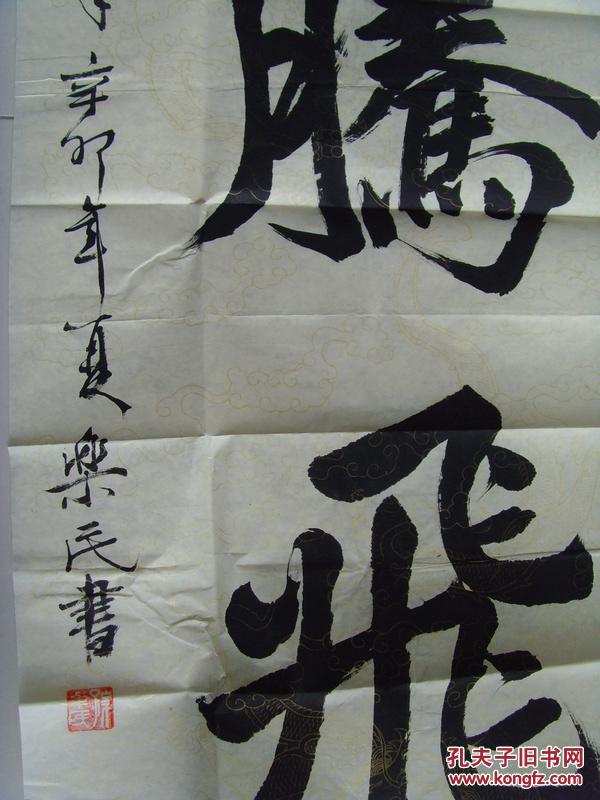 騰飛
辛卯年夏樂民書
孔夫子旧书网
www.kongfz.com